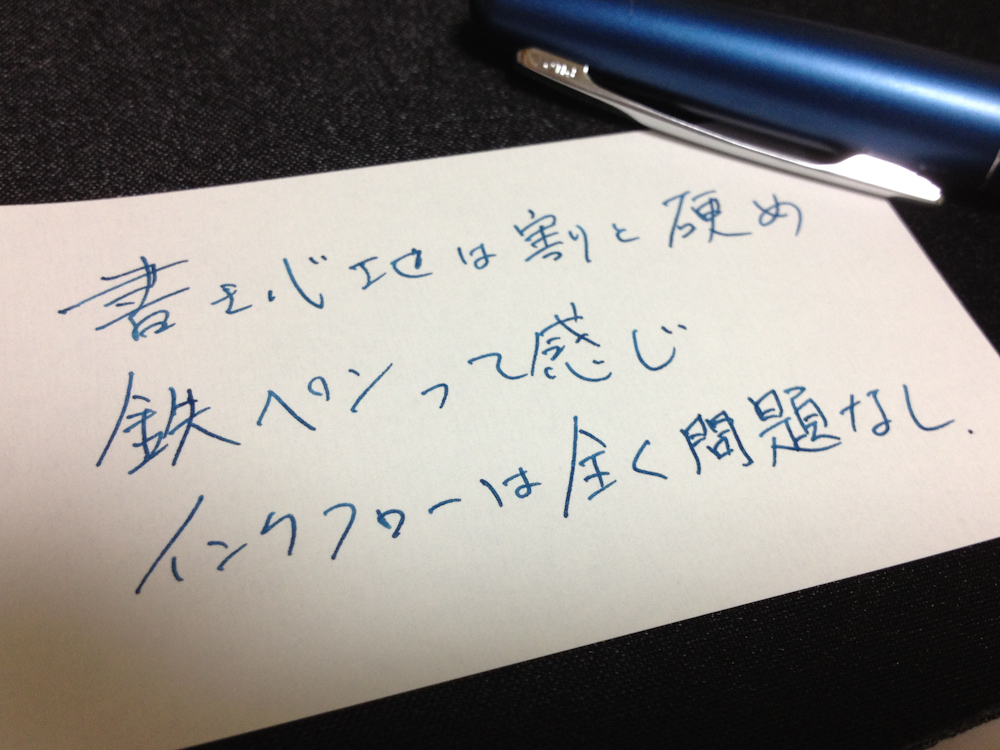 書き心地は割と硬め
鉄ペンって感じ
インクフローは全く問題なし.